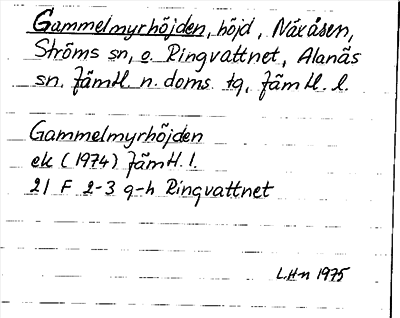 Gammelmyrhöjden, höjd, Näxåsen,
Ströms sn, o. Ringvattnet, Alanäs
sn, Jämtl. n. doms. tg, Jämtl. l.
Gammelmyrhöjden
ek (1974) Jämtl. l.
21 F 2-3 g-h Ringvattnet
L.H-n 1975